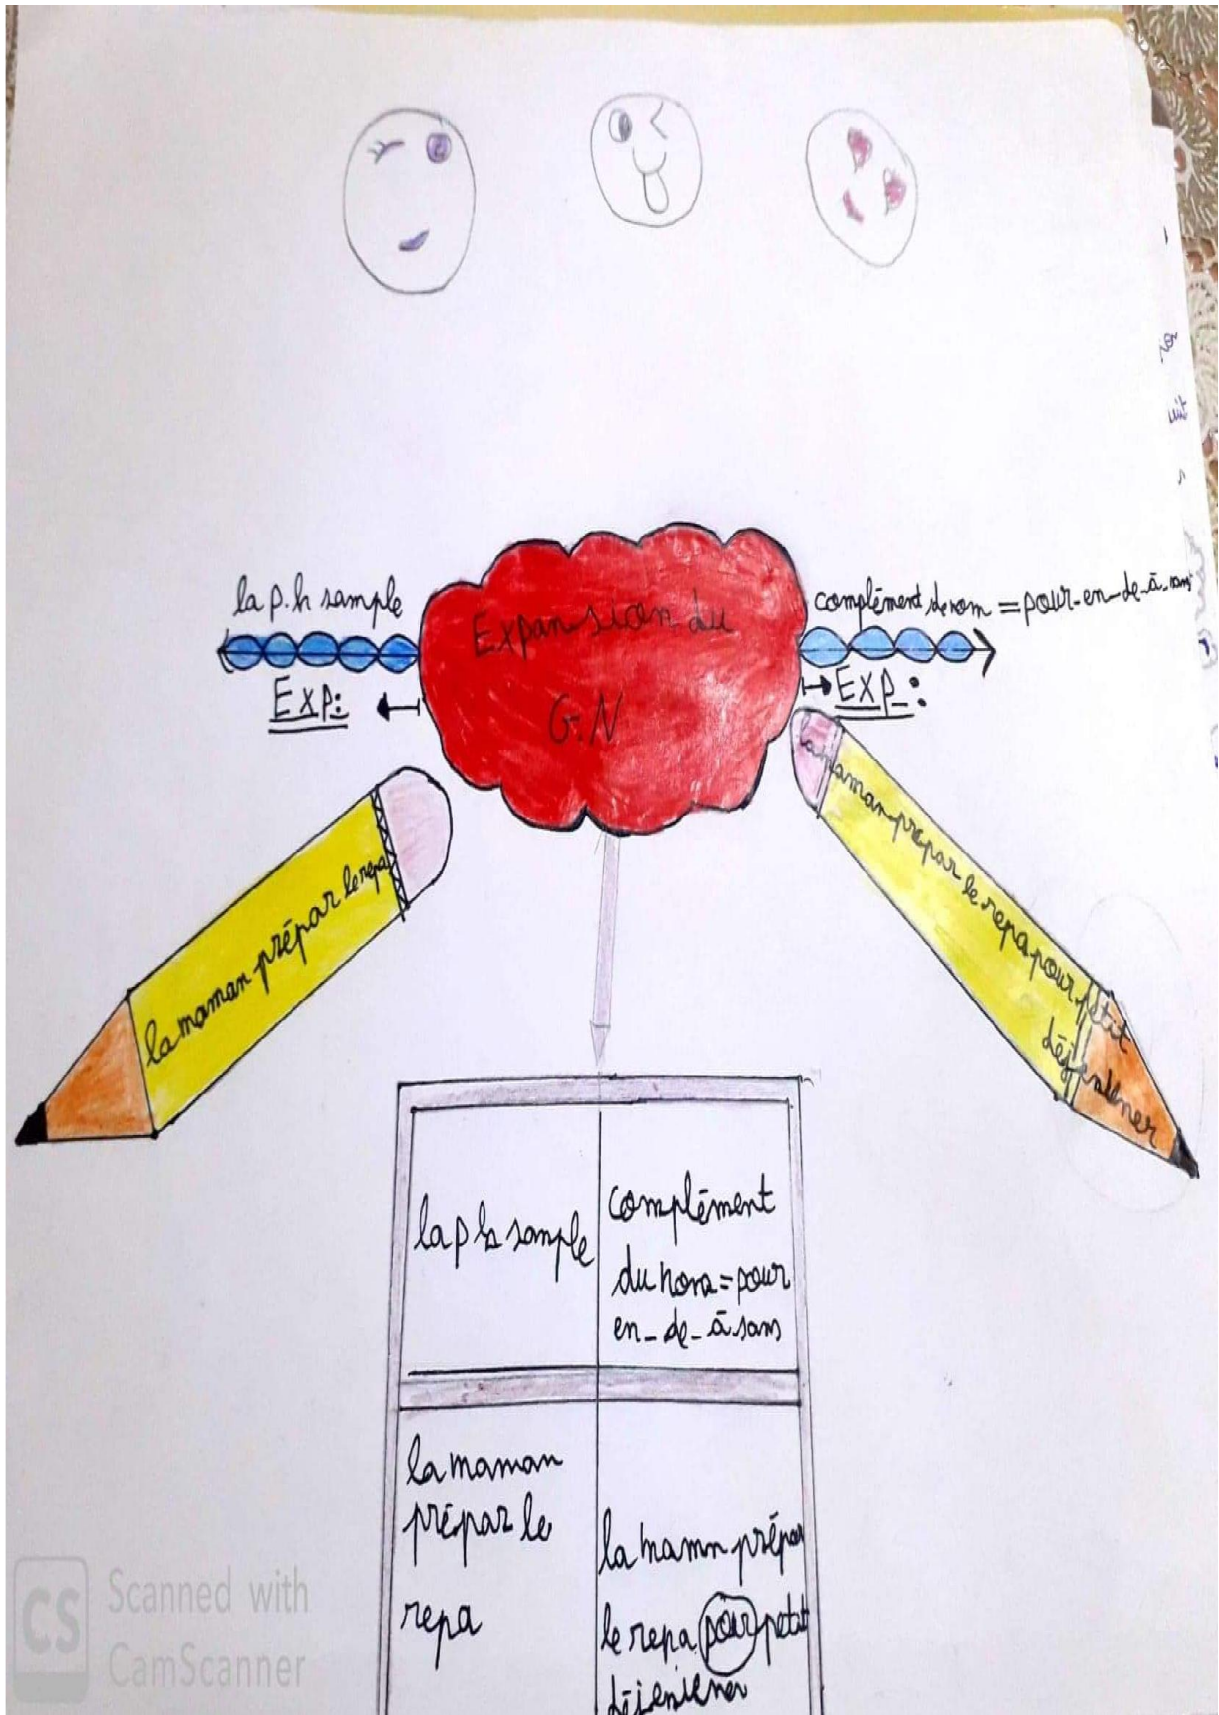 la p.h sample
complément de nom = pour-en-de-à-sans
Expansion du
G.N
Exp:
Exp:
la maman prépar le repa
la maman prepar le repa pour petit
la ph sample
complément
du nom = pour
en-de-à sans
la maman
prépar le
repa
la mamn prépar
le repa pour petit
CS Scanned with
CamScanner